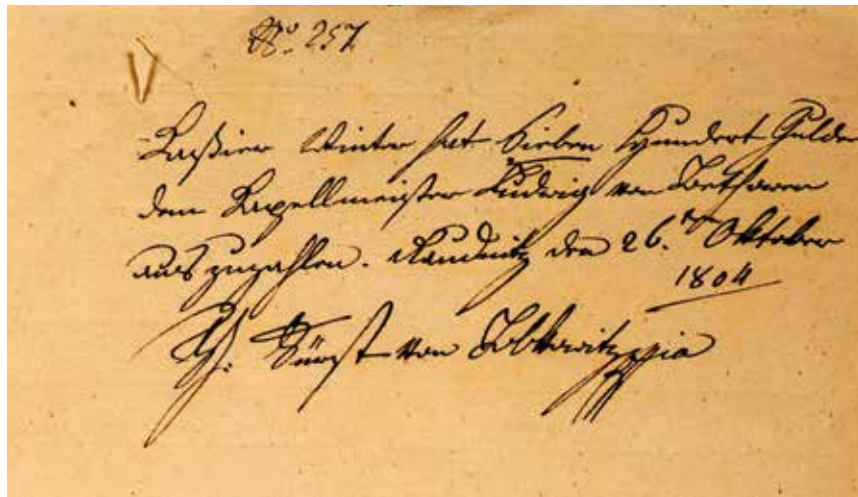 No. 257
Kassier Winter hat Sieben Hundert Gulde
dem Kapellmeister Ludwig van Bethoven
auszuzahlen. Raudnitz den 26.ten Oktober
1804
Fürst von Lobkowitz